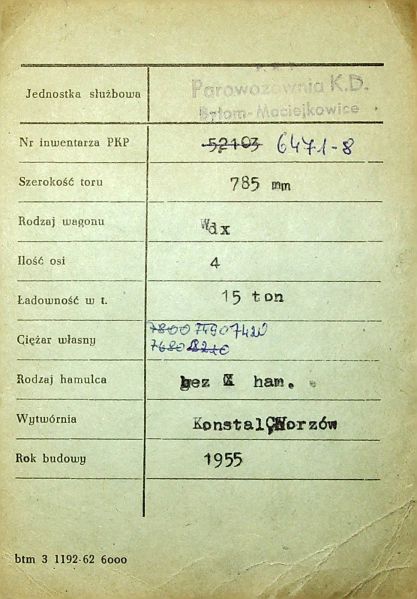 P.K.P.
Jednostka służbowa Parowozownia K.D.
Bytom-Maciejkowice
Nr inwentarza PKP 52103 6471-8
Szerokość toru 785 mm
Rodzaj wagonu Wdx
Ilość osi 4
Ładowność w t. 15 ton
Ciężar własny 7800 7420
7680
Rodzaj hamulca bez ham.
Wytwórnia Konstal Chorzów
Rok budowy 1955
btm 3 1192-62 6000